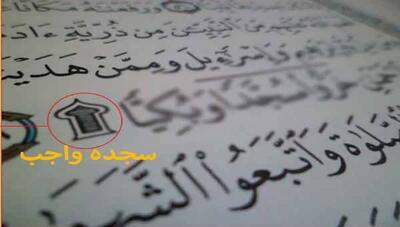 مِن ذُرِّيَّةِ ءَادَ
وَإِسْرَٰٓءِيلَ وَمِمَّنْ هَدَيْنَ
خَرُّوا۟ سُجَّدًا وَبُكِيًّا
سجده واجب
ٱلصَّلَوٰةَ وَٱتَّبَعُوا۟ ٱلشَّهَوَ